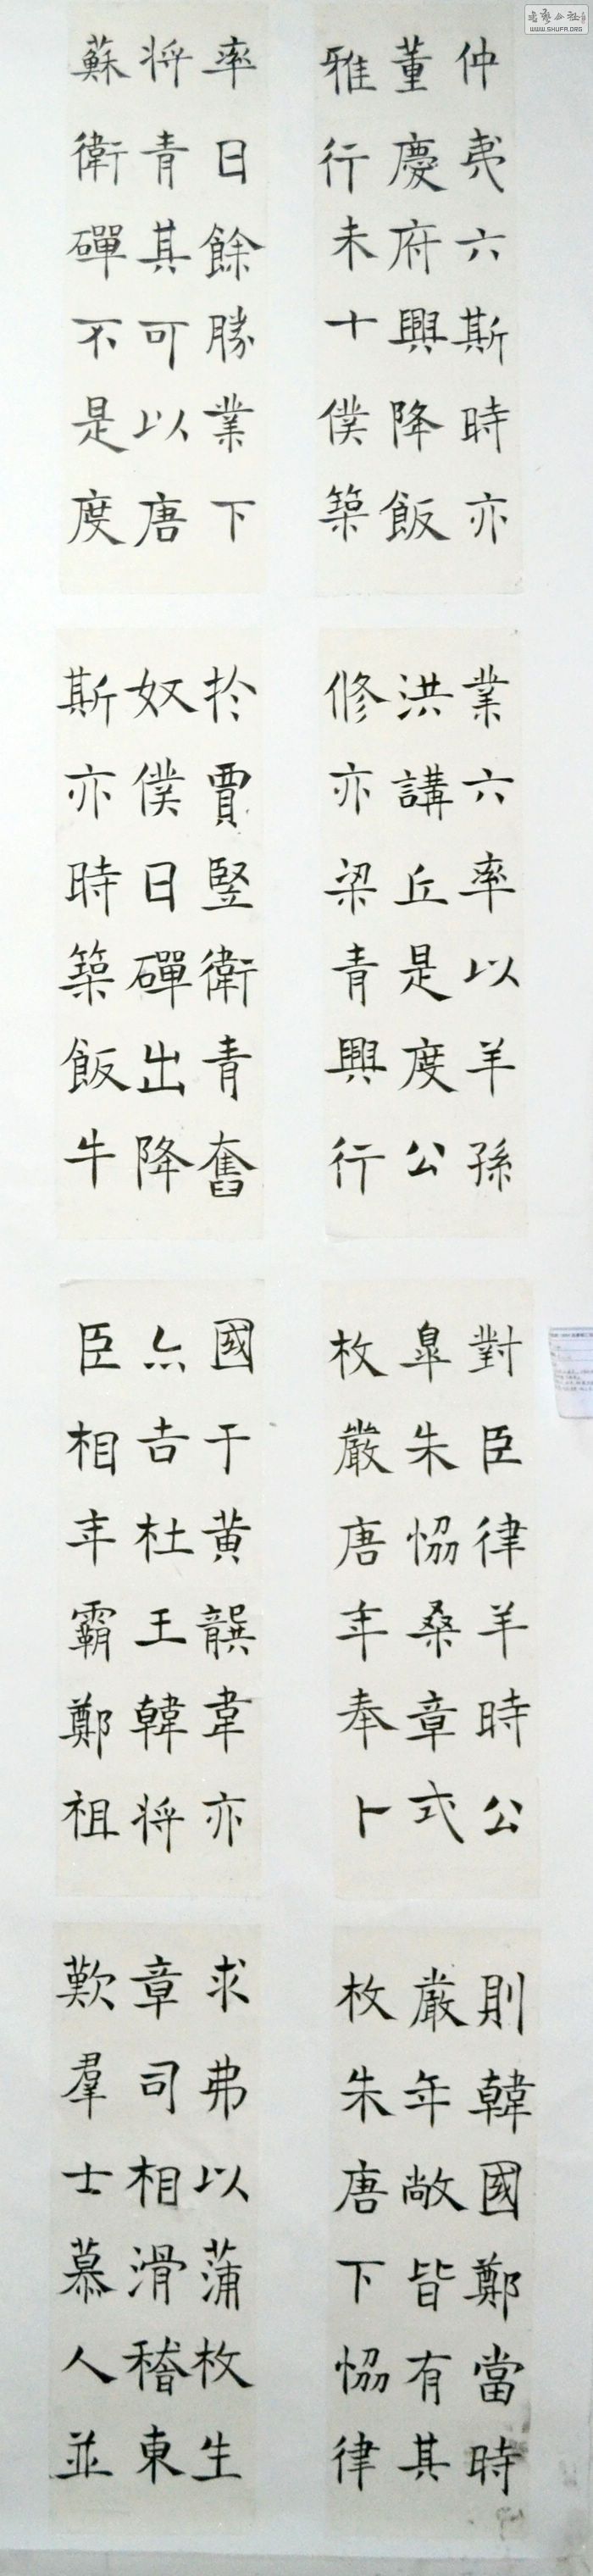 仲夷六斯時亦
董慶府興降飯
雅行未十僕築
率日餘勝業下
将青其可以唐
蘇衛磾不是度
業六率以羊孫
洪講丘是度公
修亦梁青興行
於賈豎衛青奮
奴僕日磾出降
斯亦時築飯牛
對臣律羊時公
皐朱恊桑章式
枚嚴唐年奉卜
國于黄龔韋亦
吉杜王韓将
臣相年霸鄭祖
則韓國鄭當時
嚴年敞皆有其
枚朱唐下恊律
求弗以蒲枚生
章司相滑稽東
歎羣士慕人並
WWW.SHUFA.ORG